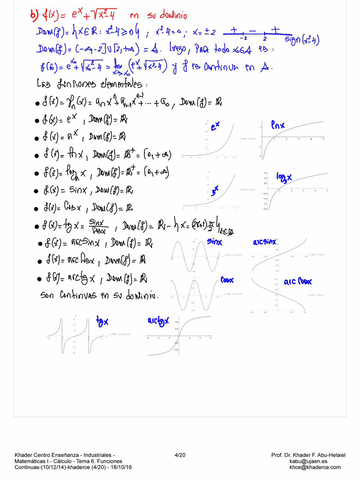 b) f(x) = e^x + √(x²-4) en su dominio
Dom(f) = {x∈R: x²-4≥0}; x²-4=0; x=±2
+ - +
-2 2 sign(x²-4)
Dom(f) = (-∞,-2]∪[2,+∞) = A. Luego, para todo x₀∈A es:
y f es continua en A.
Las funciones elementales:
• f(x) = Pn(x) = anx^n + an-1x^n-1 + ... + a₀, Dom(f) = R
• f(x) = e^x, Dom(f) = R
• f(x) = a^x, Dom(f) = R
• f(x) = lnx, Dom(f) = R⁺ = (0,+∞)
• f(x) = logax, Dom(f) = R⁺ = (0,+∞)
• f(x) = sinx, Dom(f) = R
• f(x) = cosx, Dom(f) = R
• f(x) = tgx = sinx/cosx, Dom(f) = R - {x=(2k+1)π/2}k∈Z
• f(x) = arcsinx, Dom(f) = R
• f(x) = arccosx, Dom(f) = R
• f(x) = arctgx, Dom(f) = R
son continuas en su dominio.
e^x
lnx
a^x
logax
sinx
arcsinx
cosx
arccosx
tgx
arctgx
Khader Centro Enseñanza - Industriales -
Matemáticas I - Cálculo - Tema 6. Funciones
Continuas-(10/12/14)-khaderce (4/20) - 18/10/16
4/20
Prof. Dr. Khader F. Abu-Helaiel
kabu@ujaen.es
khce@khaderce.com